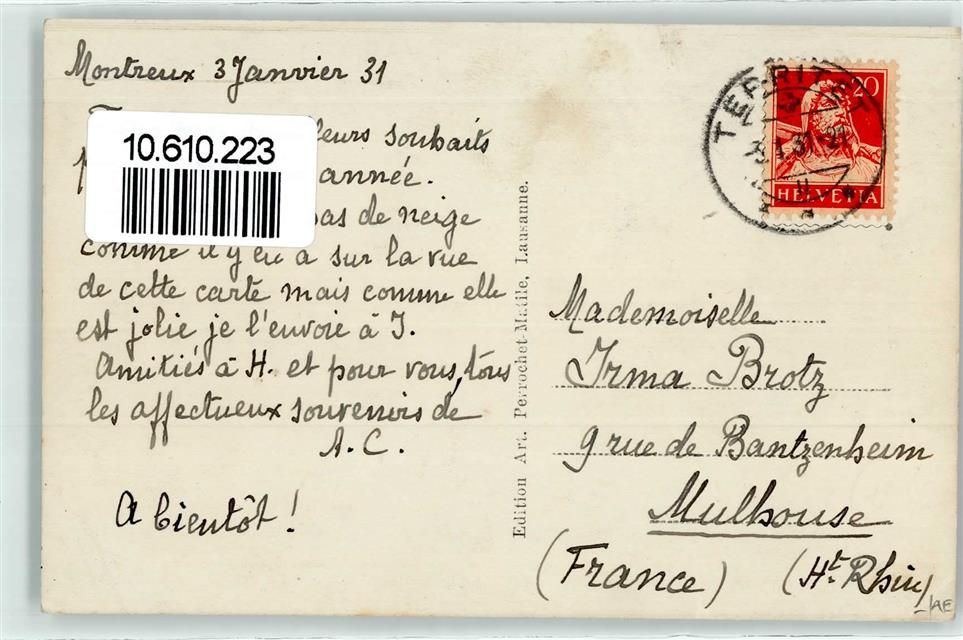 Montreux 3 Janvier 31
10.610.223
leurs souhaits
année.
pas de neige
comme il y en a sur la vue
de cette carte mais comme elle
est jolie je l'envoie à I.
Amitiés à H. et pour vous, tous
les affectueux souvenirs de
A.C.
A bientôt !
Edition Art. Perrochet-Matile, Lausanne.
TERRITET
20
HELVETIA
Mademoiselle
Irma Brotz
9 rue de Bantzenheim
Mulhouse
(France) (Ht. Rhin)